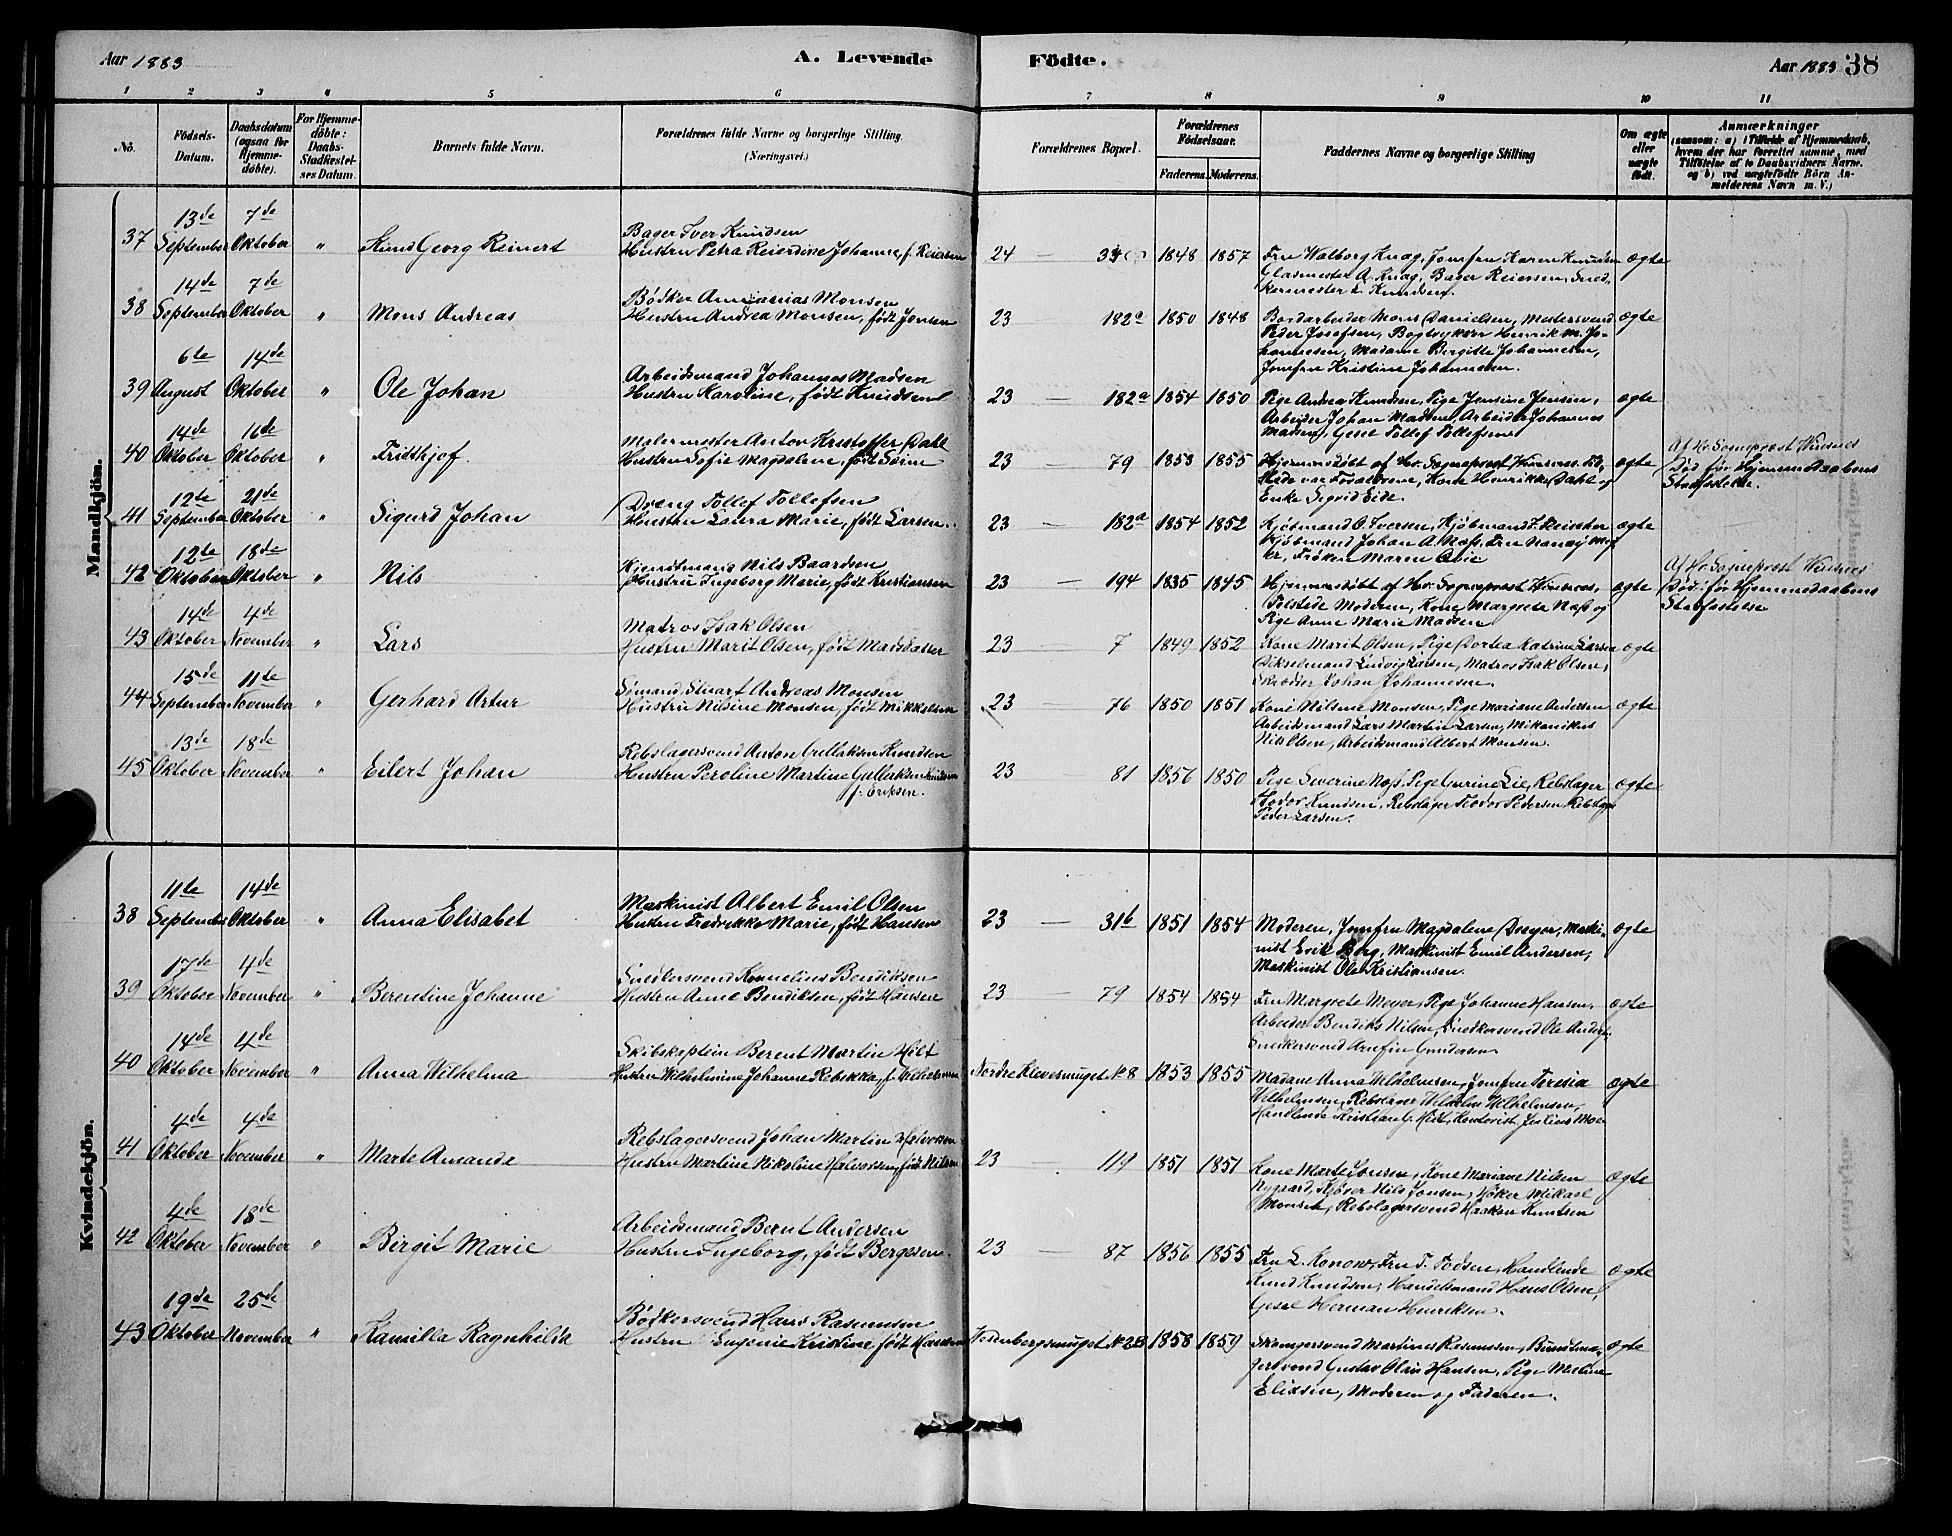 Aar 1883
A. Levende
Födte.
Aar 1883 38
1 2 3 4 5 6 7 8 9 10 11
No.
Födsels-Datum.
Daabsdatum (ogsaa for Hjemme-döbte).
For Hjemme-döbte: Daabs-Stadfæstel-ses Datum.
Barnets fulde Navn.
Forældrenes fulde Navne og borgerlige Stilling. (Næringsvei.)
Forældrenes Bopæl.
Forældrenes Födselsaar. Faderens. Moderens.
Faddernes Navne og borgerlige Stilling
Om ægte eller uægte födt.
Anmærkninger (saasom: a) i Tilfælde af Hjemmedaab, hvem der har forrettet samme, med Tilföielse af to Daabsvidners Navne, og b) ved uægtefödte Börn Anmelderens Navn m. V.)
Mandkjön.
37 13de September 7de Oktober " Knud Georg Reinert
Bager Iver Knudsen
Hustru Petra Reierdine Johanne, f. Reiersen
24 — 1848 1857
Fru Walborg Knag, Jomfru Karen Knudsen
Glasmester A. Knag, Bager Reiersen, Sned-
kermester L. Knudsen.
ægte
38 14de September 7de Oktober " Mons Andreas
Bödker Ananias Monsen
Hustru Andrea Monsen, født Jonsen
23 — 182a 1850 1848
Bordarbeider Mons Danielsen, Mestersvend
Peder Josefsen, Bogtrykker Henrik M. Jo-
hannesen, Madame Bergitte Johannesen,
Jomfru Kristine Johannesen.
ægte
39 6te August 14de Oktober " Ole Johan
Arbeidsmand Johannes Madsen
Hustru Karoline, født Knudsen
23 — 182a 1854 1850
Pige Andrea Knudsen, Pige Jensine Jensen,
Arbeider Johan Madsen, Arbeider Johannes
Madsen, Gesel Tollef Tollefsen
ægte
40 14de Oktober 16de Oktober " Fridthjof.
Malermester Anton Kristoffer Dahl
Hustru Sofie Magdalene, født
23 — 79 1853 1855
Hjemmedøbt af Hr. Sogneprest
stede var Forældrene, Kone Henrikke Dahl og
Enke Sigrid Eide.
ægte
Af Hr. Sogneprest
Død før Hjemmedaabens
Stadfæstelse.
41 12te September 21de Oktober " Sigurd Johan
Dreng Tollef Tollefsen
Hustru Laura Marie, født Larsen.
23 — 182a 1854 1852
Kjøbmand O. Iversen, Kjøbmand
Kjøbmand Johan A. Næss, Fru Nanny
Frøken Maren
ægte
42 12te Oktober 18de Oktober " Nils
Nils Baardsen
Hustru Ingeborg Marie, født Kristiansen
23 — 194 1835 1845
Hjemmedøbt af Hr. Sogneprest
Tilstede Moderen, Kone Margrete Næss og
Pige Anne Marie Madsen
ægte
Af Hr. Sogneprest
Død før Hjemmedaabens
Stadfæstelse
43 14de Oktober 4de November " Lars
Matros Isak Olsen
Hustru Marit Olsen, født Madsdatter
23 — 7 1849 1852
Kone Marit Olsen, Pige Dortea Katrine Larsen
Ludvig Larsen, Matros Isak Olsen,
Skrædder Johan Johannesen.
ægte
44 15de September 11te November " Gerhard Artur
Sømand, Stuart Andreas Monsen
Hustru Nilsine Monsen, født Mikkelsen
23 — 76 1850 1851
Kone Nilsine Monsen, Pige Mariane Andersen
Arbeidsmand Lars Martin Larsen, Mikanikus
Nils Olsen, Arbeidsmand Albert Monsen.
ægte
45 13de Oktober 18de November " Eilert Johan
Rebslagersvend Anton Gullaksen Knudsen
Hustru Peroline Martine Gullaksen Knudsen
f. Eriksen.
23 81 1856 1850
Pige Severine Næss, Pige Gurine Lie, Rebslager
Teodor Knudsen, Rebslager Teodor Pedersen, Rebslager
Peder Larsen.
ægte
Kvindekjön.
38 11te September 14de Oktober " Anna Elisabet
Maskinist Albert Emil Olsen
Hustru Fredrikke Marie, født Hansen
23 — 31b 1851 1854
Moderen, Jomfru Magdalene Dreyer, Maski-
nist Erik Berg, Maskinist Emil Andersen,
Maskinist Ole Kristiansen.
ægte
39 17de Oktober 4de November " Berentine Johanne
Snedkersvend Kornelius Bendiksen
Hustru Anne Bendiksen, født Hansen
23 — 79 1854 1854
Fru Margrete Meyer, Pige Johanne Hansen,
Arbeider Bendiks Nilsen, Snedkersvend Ole Anders.
Snedkersvend Arnfin Gundersen
ægte
40 14de Oktober 4de November " Anna Wilhelma
Skibskaptein Berent Martin Hilt
Hustru Wilhelmine Johanne Rebekka, f. Wilhelmsen
Nordre Klevesmuget No 8 1853 1855
Madame Anna Wilhelmsen, Jomfru Teresia
Wilhelmsen, Rebslager Wilhelm Wilhelmsen,
Handlende Kristian G. Hilt, Kontorist Julius Moe
ægte
41 4de Oktober 4de November " Marte Amanda
Rebslagersvend Johan Martin Halvorsen
Hustru Martine Nikoline Halvorsen, født Nilsen
23 — 119 1851 1851
Kone Marte Jonsen, Kone Mariane Nilsen
Nygaard, Nils Jonsen, Høker Mikael
Monsen, Rebslagersvend Haakon Knutsen
ægte
42 4de Oktober 18de November " Birgit Marie
Arbeidsmand Bernt Andersen
Hustru Ingeborg, født Bergesen.
23 — 87 1856 1855
Fru L. Konow, Fru T. Todsen, Handlende
Knud Knudsen, Handelsmand Hans Olsen,
Gesel Herman Henriksen.
ægte
43 19de Oktober 25de November " Kamilla Ragnhilda
Bödkersvend Hans Rasmussen
Hustru Eugenie Kristine født Hansen
No 2B 1858 1859
Martinus Rasmussen, Buntma-
gersvend Gustav Olai Hansen, Pige Meline
Eliasen, Moderen og Faderen.
ægte